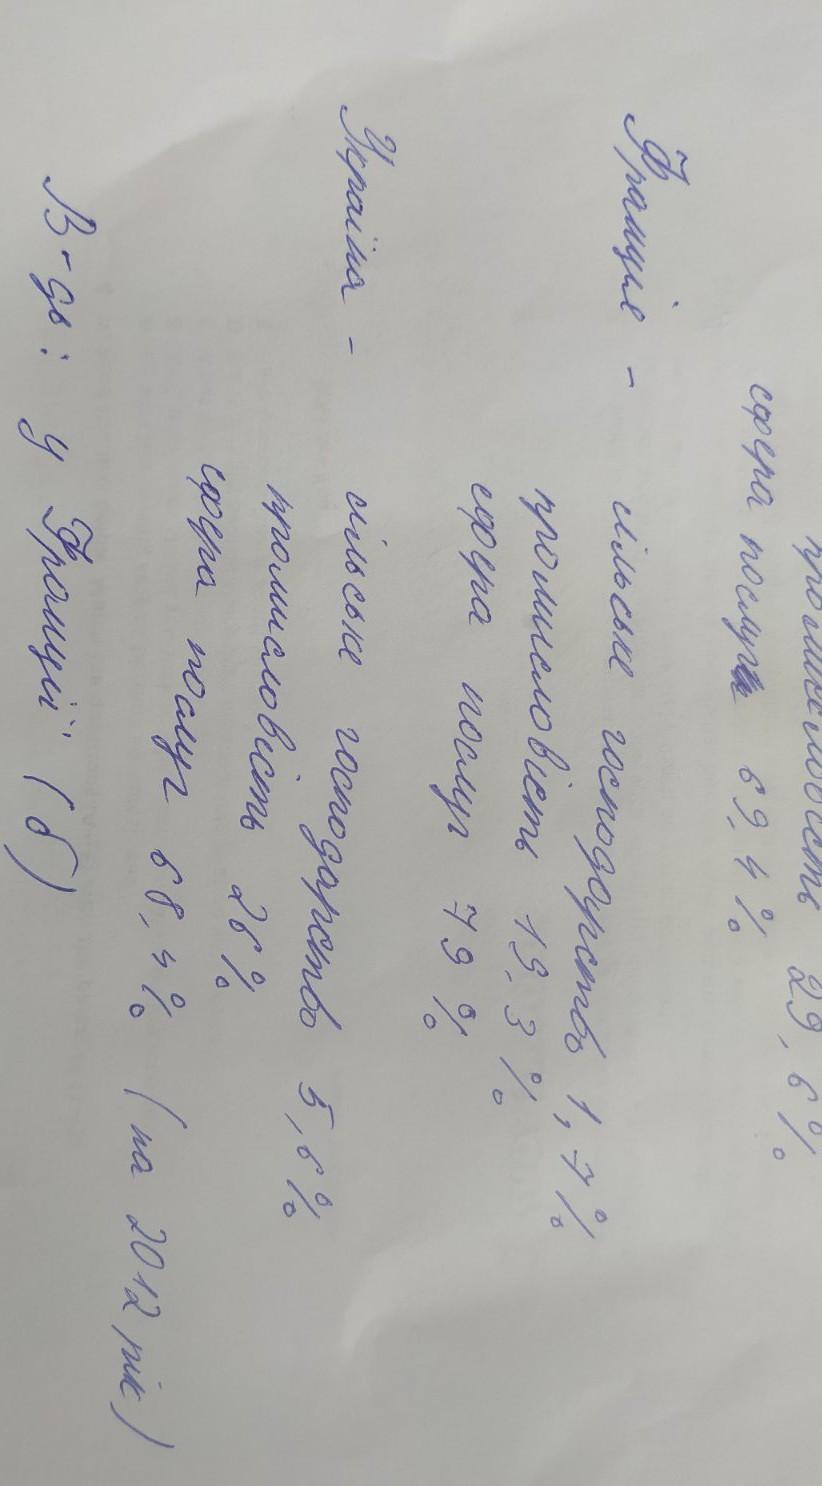 промисловість 29,6%
сфера послуг 69,4%
Франція - сільське господарство 1,7%
промисловість 19,3%
сфера послуг 79%
Україна - сільське господарство 5,6%
промисловість 26%
сфера послуг 68,4% (на 2012 рік)
В-дь: у Франції (б)